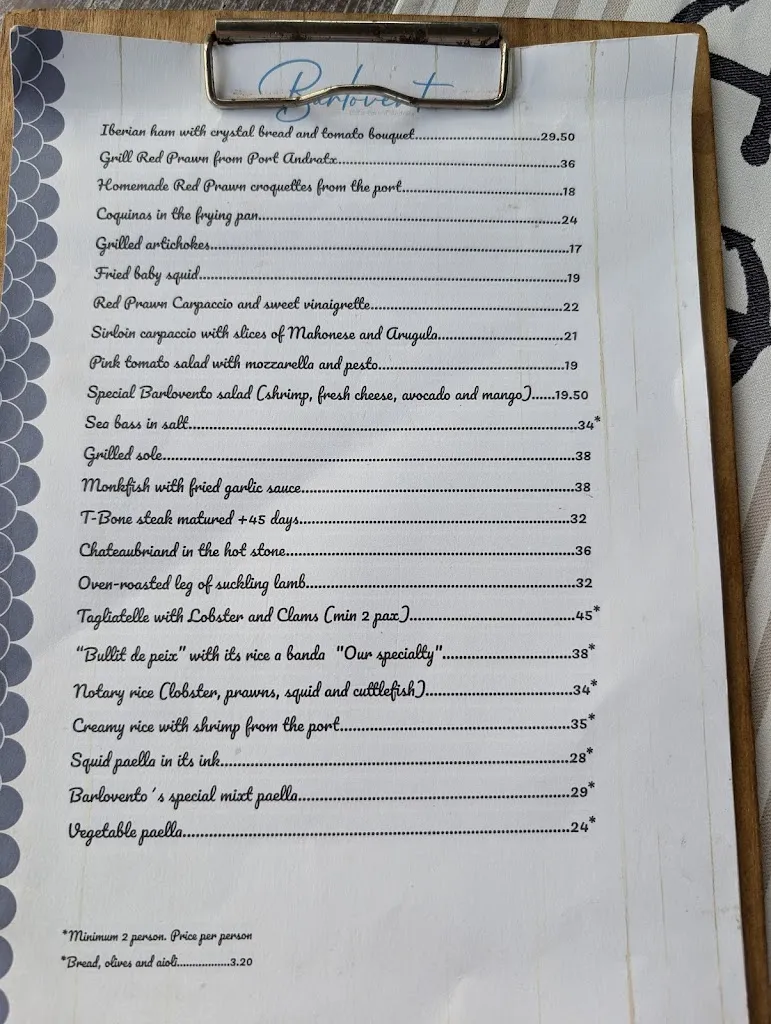 Barlovento
Iberian ham with crystal bread and tomato bouquet..............................29.50
Grill Red Prawn from Port Andratx..............................36
Homemade Red Prawn croquettes from the port..............................18
Coquinas in the frying pan..............................24
Grilled artichokes..............................17
Fried baby squid..............................19
Red Prawn Carpaccio and sweet vinaigrette..............................22
Sirloin carpaccio with slices of Mahonese and Arugula..............................21
Pink tomato salad with mozzarella and pesto..............................19
Special Barlovento salad (shrimp, fresh cheese, avocado and mango)......19.50
Sea bass in salt..............................34*
Grilled sole..............................38
Monkfish with fried garlic sauce..............................38
T-Bone steak matured +45 days..............................32
Chateaubriand in the hot stone..............................36
Oven-roasted leg of suckling lamb..............................32
Tagliatelle with Lobster and Clams (min 2 pax)..............................45*
"Bullit de peix" with its rice a banda "Our specialty"..............................38*
Notary rice (lobster, prawns, squid and cuttlefish)..............................34*
Creamy rice with shrimp from the port..............................35*
Squid paella in its ink..............................28*
Barlovento´s special mixt paella..............................29*
Vegetable paella..............................24*
*Minimum 2 person. Price per person
*Bread, olives and aioli.................3.20